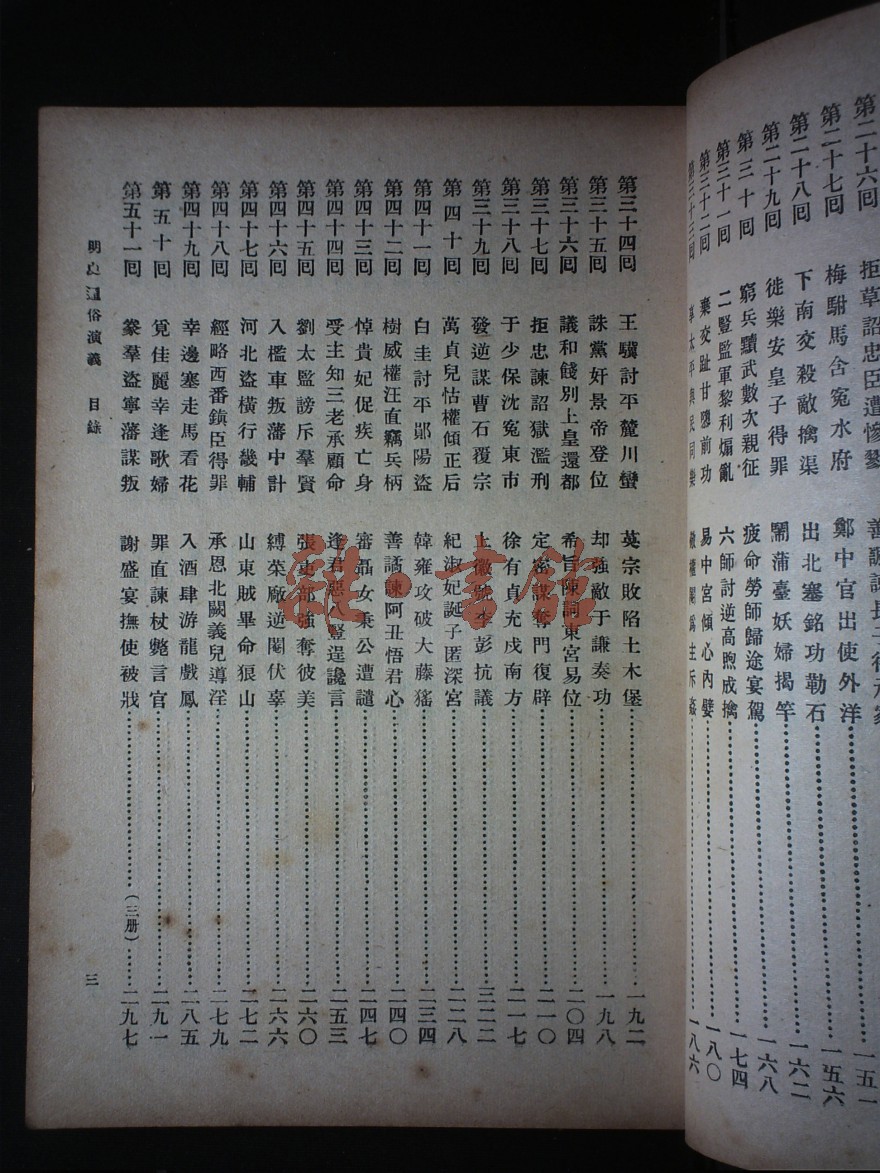 第二十六囘 拒草詔忠臣遭慘戮
第二十七囘 梅駙馬含冤水府 鄭中官出使外洋 一五六
第二十八囘 下南交殺敵擒渠 出北塞銘功勒石 一六二
第二十九囘 徙樂安皇子得罪 鬧蒲臺妖婦揭竿 一六八
第三十囘 窮兵黷武數次親征 疲命勞師歸途宴駕 一七四
第三十一囘 二豎監軍黎利煽亂 六師討逆高煦成擒 一八〇
第三十二囘 棄交趾甘隳前功 易中宮傾心內嬖 一八六
第三十三囘 享太平與民同樂
第三十四囘 王驥討平麓川蠻 英宗敗陷土木堡 一九二
第三十五囘 誅黨奸景帝登位 却強敵于謙奏功 一九八
第三十六囘 議和餞別上皇還都 希旨陳詞東宮易位 二〇四
第三十七囘 拒忠諫詔獄濫刑 定密謀奪門復辟 二一〇
第三十八囘 于少保沈冤東市 徐有貞充戍南方 二一七
第三十九囘 發逆謀曹石覆宗 上徽號李彭抗議 三二二
第四十囘 萬貞兒怙權傾正后 紀淑妃誕子匿深宮 二二八
第四十一囘 白圭討平鄖陽盜 韓雍攻破大藤猺 二三四
第四十二囘 樹威權汪直竊兵柄 善譎諫阿丑悟君心 二四〇
第四十三囘 悼貴妃促疾亡身 審聶女秉公遭譴 二四七
第四十四囘 受主知三老承顧命 逢君惡八豎逞讒言 二五三
第四十五囘 劉太監謗斥羣賢 張吏部強奪彼美 二六〇
第四十六囘 入檻車叛藩中計 縛菜廠逆閹伏辜 二六六
第四十七囘 河北盜橫行畿輔 山東賊畢命狼山 二七二
第四十八囘 經略西番鎮臣得罪 承恩北闕義兒導淫 二七九
第四十九囘 幸邊塞走馬看花 入酒肆游龍戲鳳 二八五
第五十囘 覓佳麗幸逢歌婦 罪直諫杖斃言官 二九一
第五十一囘 豢羣盜寧藩謀叛 謝盛宴撫使被戕 (三册) 二九七
明史通俗演義 目錄
三
雜·書館